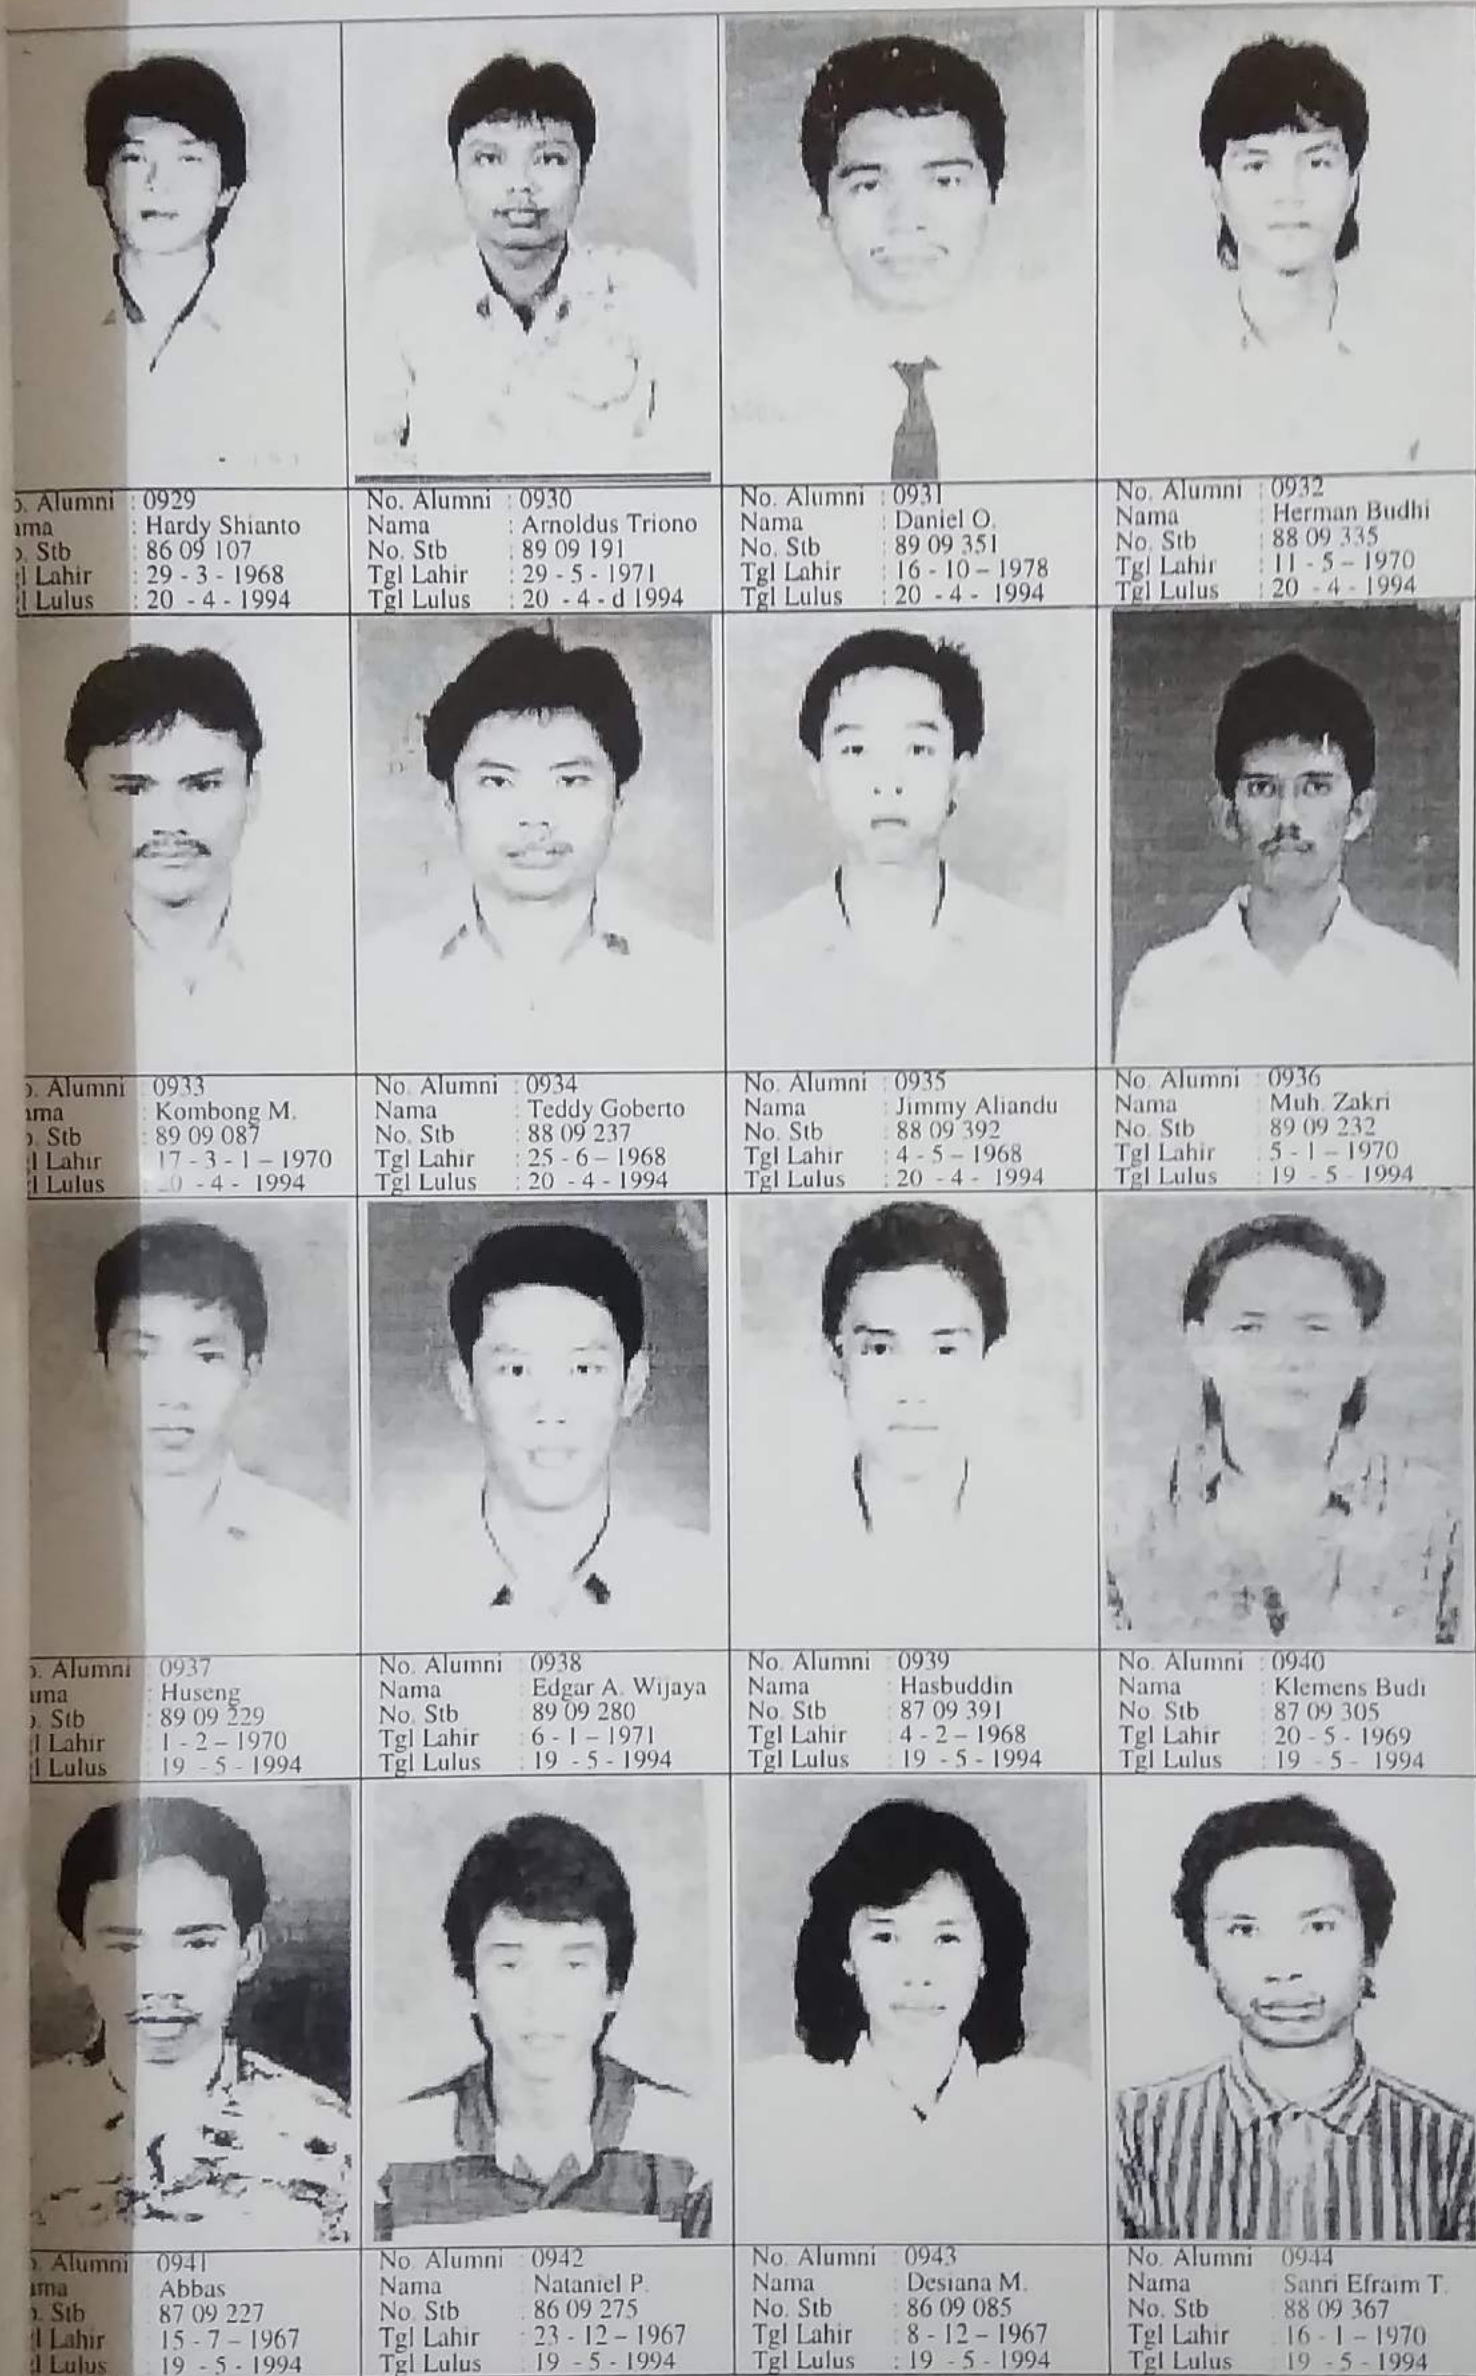 o. Alumni : 0929
ama : Hardy Shianto
o. Stb : 86 09 107
gl Lahir : 29 - 3 - 1968
gl Lulus : 20 - 4 - 1994
No. Alumni : 0930
Nama : Arnoldus Triono
No. Stb : 89 09 191
Tgl Lahir : 29 - 5 - 1971
Tgl Lulus : 20 - 4 - d 1994
No. Alumni : 0931
Nama : Daniel O.
No. Stb : 89 09 351
Tgl Lahir : 16 - 10 – 1978
Tgl Lulus : 20 - 4 - 1994
No. Alumni : 0932
Nama : Herman Budhi
No. Stb : 88 09 335
Tgl Lahir : 11 - 5 – 1970
Tgl Lulus : 20 - 4 - 1994
o. Alumni : 0933
ama : Kombong M.
o. Stb : 89 09 087
gl Lahir : 17 - 3 - 1 – 1970
gl Lulus : 0 - 4 - 1994
No. Alumni : 0934
Nama : Teddy Goberto
No. Stb : 88 09 237
Tgl Lahir : 25 - 6 – 1968
Tgl Lulus : 20 - 4 - 1994
No. Alumni : 0935
Nama : Jimmy Aliandu
No. Stb : 88 09 392
Tgl Lahir : 4 - 5 – 1968
Tgl Lulus : 20 - 4 - 1994
No. Alumni : 0936
Nama : Muh. Zakri
No. Stb : 89 09 232
Tgl Lahir : 5 - 1 – 1970
Tgl Lulus : 19 - 5 - 1994
o. Alumni : 0937
ama : Huseng
o. Stb : 89 09 229
gl Lahir : 1 - 2 – 1970
gl Lulus : 19 - 5 - 1994
No. Alumni : 0938
Nama : Edgar A. Wijaya
No. Stb : 89 09 280
Tgl Lahir : 6 - 1 – 1971
Tgl Lulus : 19 - 5 - 1994
No. Alumni : 0939
Nama : Hasbuddin
No. Stb : 87 09 391
Tgl Lahir : 4 - 2 – 1968
Tgl Lulus : 19 - 5 - 1994
No. Alumni : 0940
Nama : Klemens Budi
No. Stb : 87 09 305
Tgl Lahir : 20 - 5 - 1969
Tgl Lulus : 19 - 5 - 1994
o. Alumni : 0941
ama : Abbas
o. Stb : 87 09 227
gl Lahir : 15 - 7 – 1967
gl Lulus : 19 - 5 - 1994
No. Alumni : 0942
Nama : Nataniel P.
No. Stb : 86 09 275
Tgl Lahir : 23 - 12 – 1967
Tgl Lulus : 19 - 5 - 1994
No. Alumni : 0943
Nama : Desiana M.
No. Stb : 86 09 085
Tgl Lahir : 8 - 12 – 1967
Tgl Lulus : 19 - 5 - 1994
No. Alumni : 0944
Nama : Sanri Efraim T.
No. Stb : 88 09 367
Tgl Lahir : 16 - 1 – 1970
Tgl Lulus : 19 - 5 - 1994